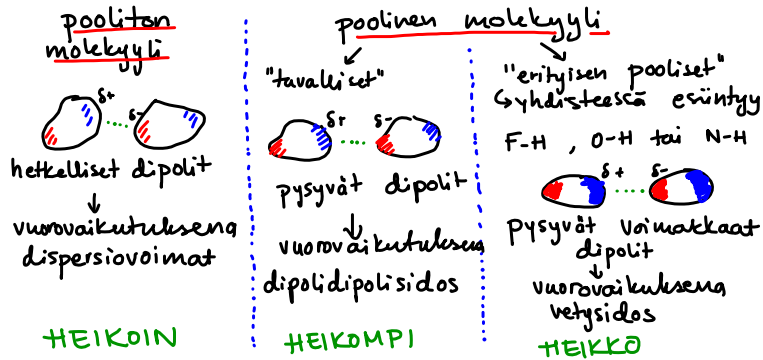 pooliton
molekyyli
δ+
δ-
hetkelliset dipolit
vuorovaikutuksena
dispersiovoimat
HEIKOIN
poolinen molekyyli
"tavalliset"
δ+
δ-
pysyvät dipolit
vuorovaikutuksena
dipolidipolisidos
HEIKOMPI
"erityisen pooliset"
yhdisteessä esiintyy
F-H, O-H tai N-H
δ+
δ-
pysyvät voimakkaat
dipolit
vuorovaikutuksena
vetysidos
HEIKKO